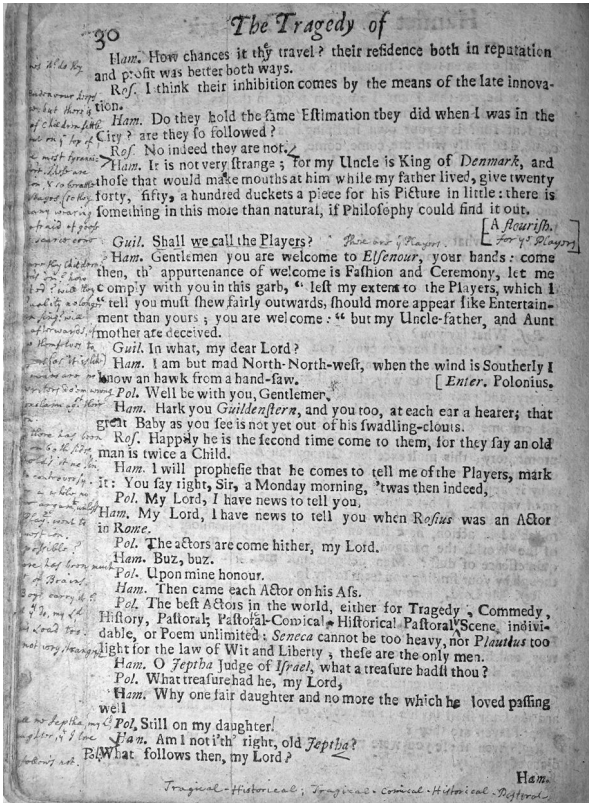 30
The Tragedy of
Ham. How chances it thy travel? their residence both in reputation
and profit was better both ways.
Ros. I think their inhibition comes by the means of the late innova-
tion.
Ham. Do they hold the same Estimation they did when I was in the
City? are they so followed?
Ros. No indeed they are not.
Ham. It is not very strange; for my Uncle is King of Denmark, and
those that would make mouths at him while my father lived, give twenty
forty, fifty, a hundred duckets a piece for his Picture in little: there is
something in this more than natural, if Philosophy could find it out.
[A flourish.
for ye Players]
Guil. Shall we call the Players?
These are ye Players.
Ham. Gentlemen you are welcome to Elsenour, your hands: come
then, th' appurtenance of welcome is Fashion and Ceremony, let me
comply with you in this garb, “ lest my extent to the Players, which I
“ tell you must shew fairly outwards, should more appear like Entertain-
ment than yours; you are welcome: “ but my Uncle-father, and Aunt
mother are deceived.
Guil. In what, my dear Lord?
Ham. I am but mad North-North-west, when the wind is Southerly I
know an hawk from a hand-saw. [Enter. Polonius.
Pol. Well be with you, Gentlemen.
Ham. Hark you Guildenstern, and you too, at each ear a hearer; that
great Baby as you see is not yet out of his swadling-clouts.
Ros. Happily he is the second time come to them, for they say an old
man is twice a Child.
Ham. I will prophesie that he comes to tell me of the Players, mark
it: You say right, Sir, a Monday morning, 'twas then indeed,
Pol. My Lord, I have news to tell you,
Ham. My Lord, I have news to tell you when Rosius was an Actor
in Rome.
Pol. The actors are come hither, my Lord.
Ham. Buz, buz.
Pol. Upon mine honour.
Ham. Then came each Actor on his Ass.
Pol. The best Actors in the world, either for Tragedy, Commedy,
History, Pastoral, Pastoral-Comical, Historical Pastoral, Scene indivi-
dable, or Poem unlimited: Seneca cannot be too heavy, nor Plautus too
light for the law of Wit and Liberty, these are the only men.
Ham. O Jeptha Judge of Israel, what a treasure hadst thou?
Pol. What treasure had he, my Lord,
Ham. Why one fair daughter and no more the which he loved passing
well
Pol. Still on my daughter!
Ham. Am I not i'th' right, old Jeptha?
Pol. What follows then, my Lord?
Ham.
Tragical-Historical; Tragical-Comical-Historical-Pastoral